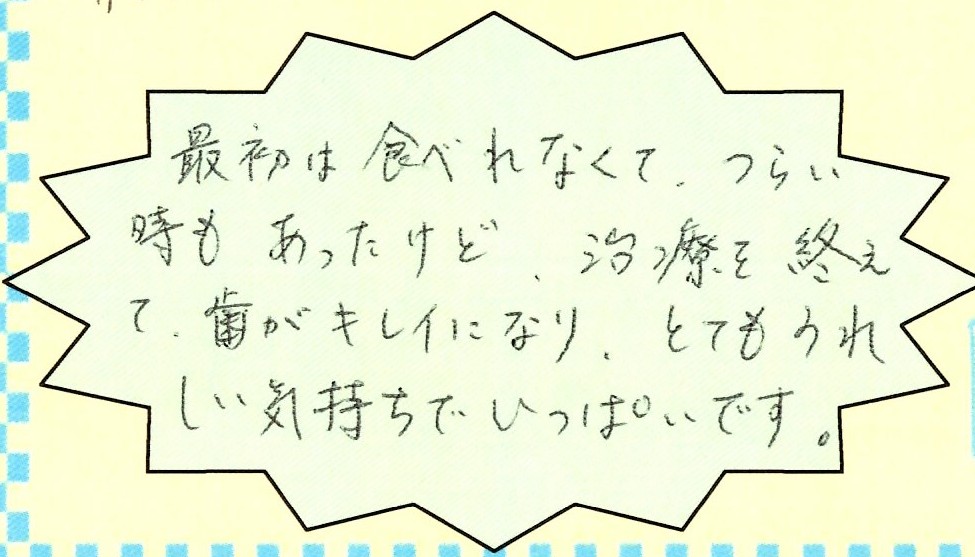 最初は食べれなくて、つらい
時もあったけど、治療を終え
て、歯がキレイになり、とてもうれ
しい気持ちでいっぱいです。